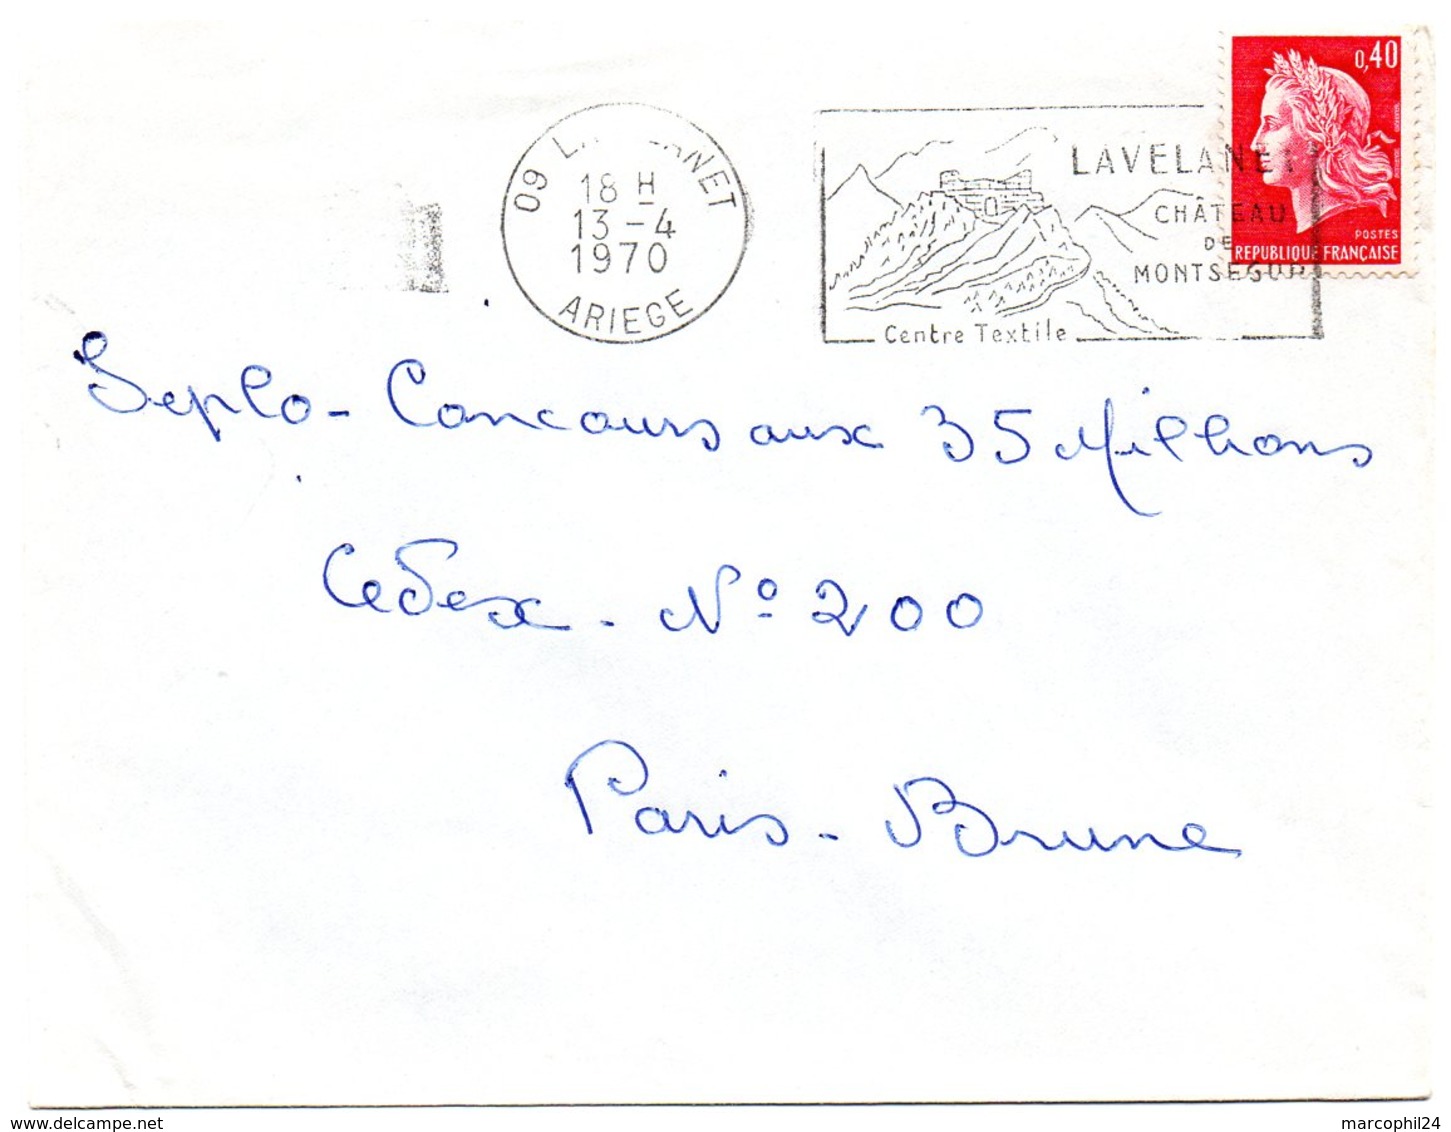 0,40
POSTES
REPUBLIQUE FRANÇAISE
09 LAVELANET
18 H
13-4
1970
ARIEGE
LAVELANET
CHÂTEAU
DE
MONTSEGUR
Centre Textile
Seplo- Concours aux 35 Millions
Cedex. N° 200
Paris. Brune
www.delcampe.net
marcophil24